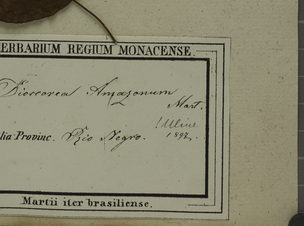 ERBARIUM REGIUM MONACENSE.
Dioscorea Amazonum
Mart.
! Uline
1897.
lia Provinc. Rio Negro.
Martii iter brasiliense.